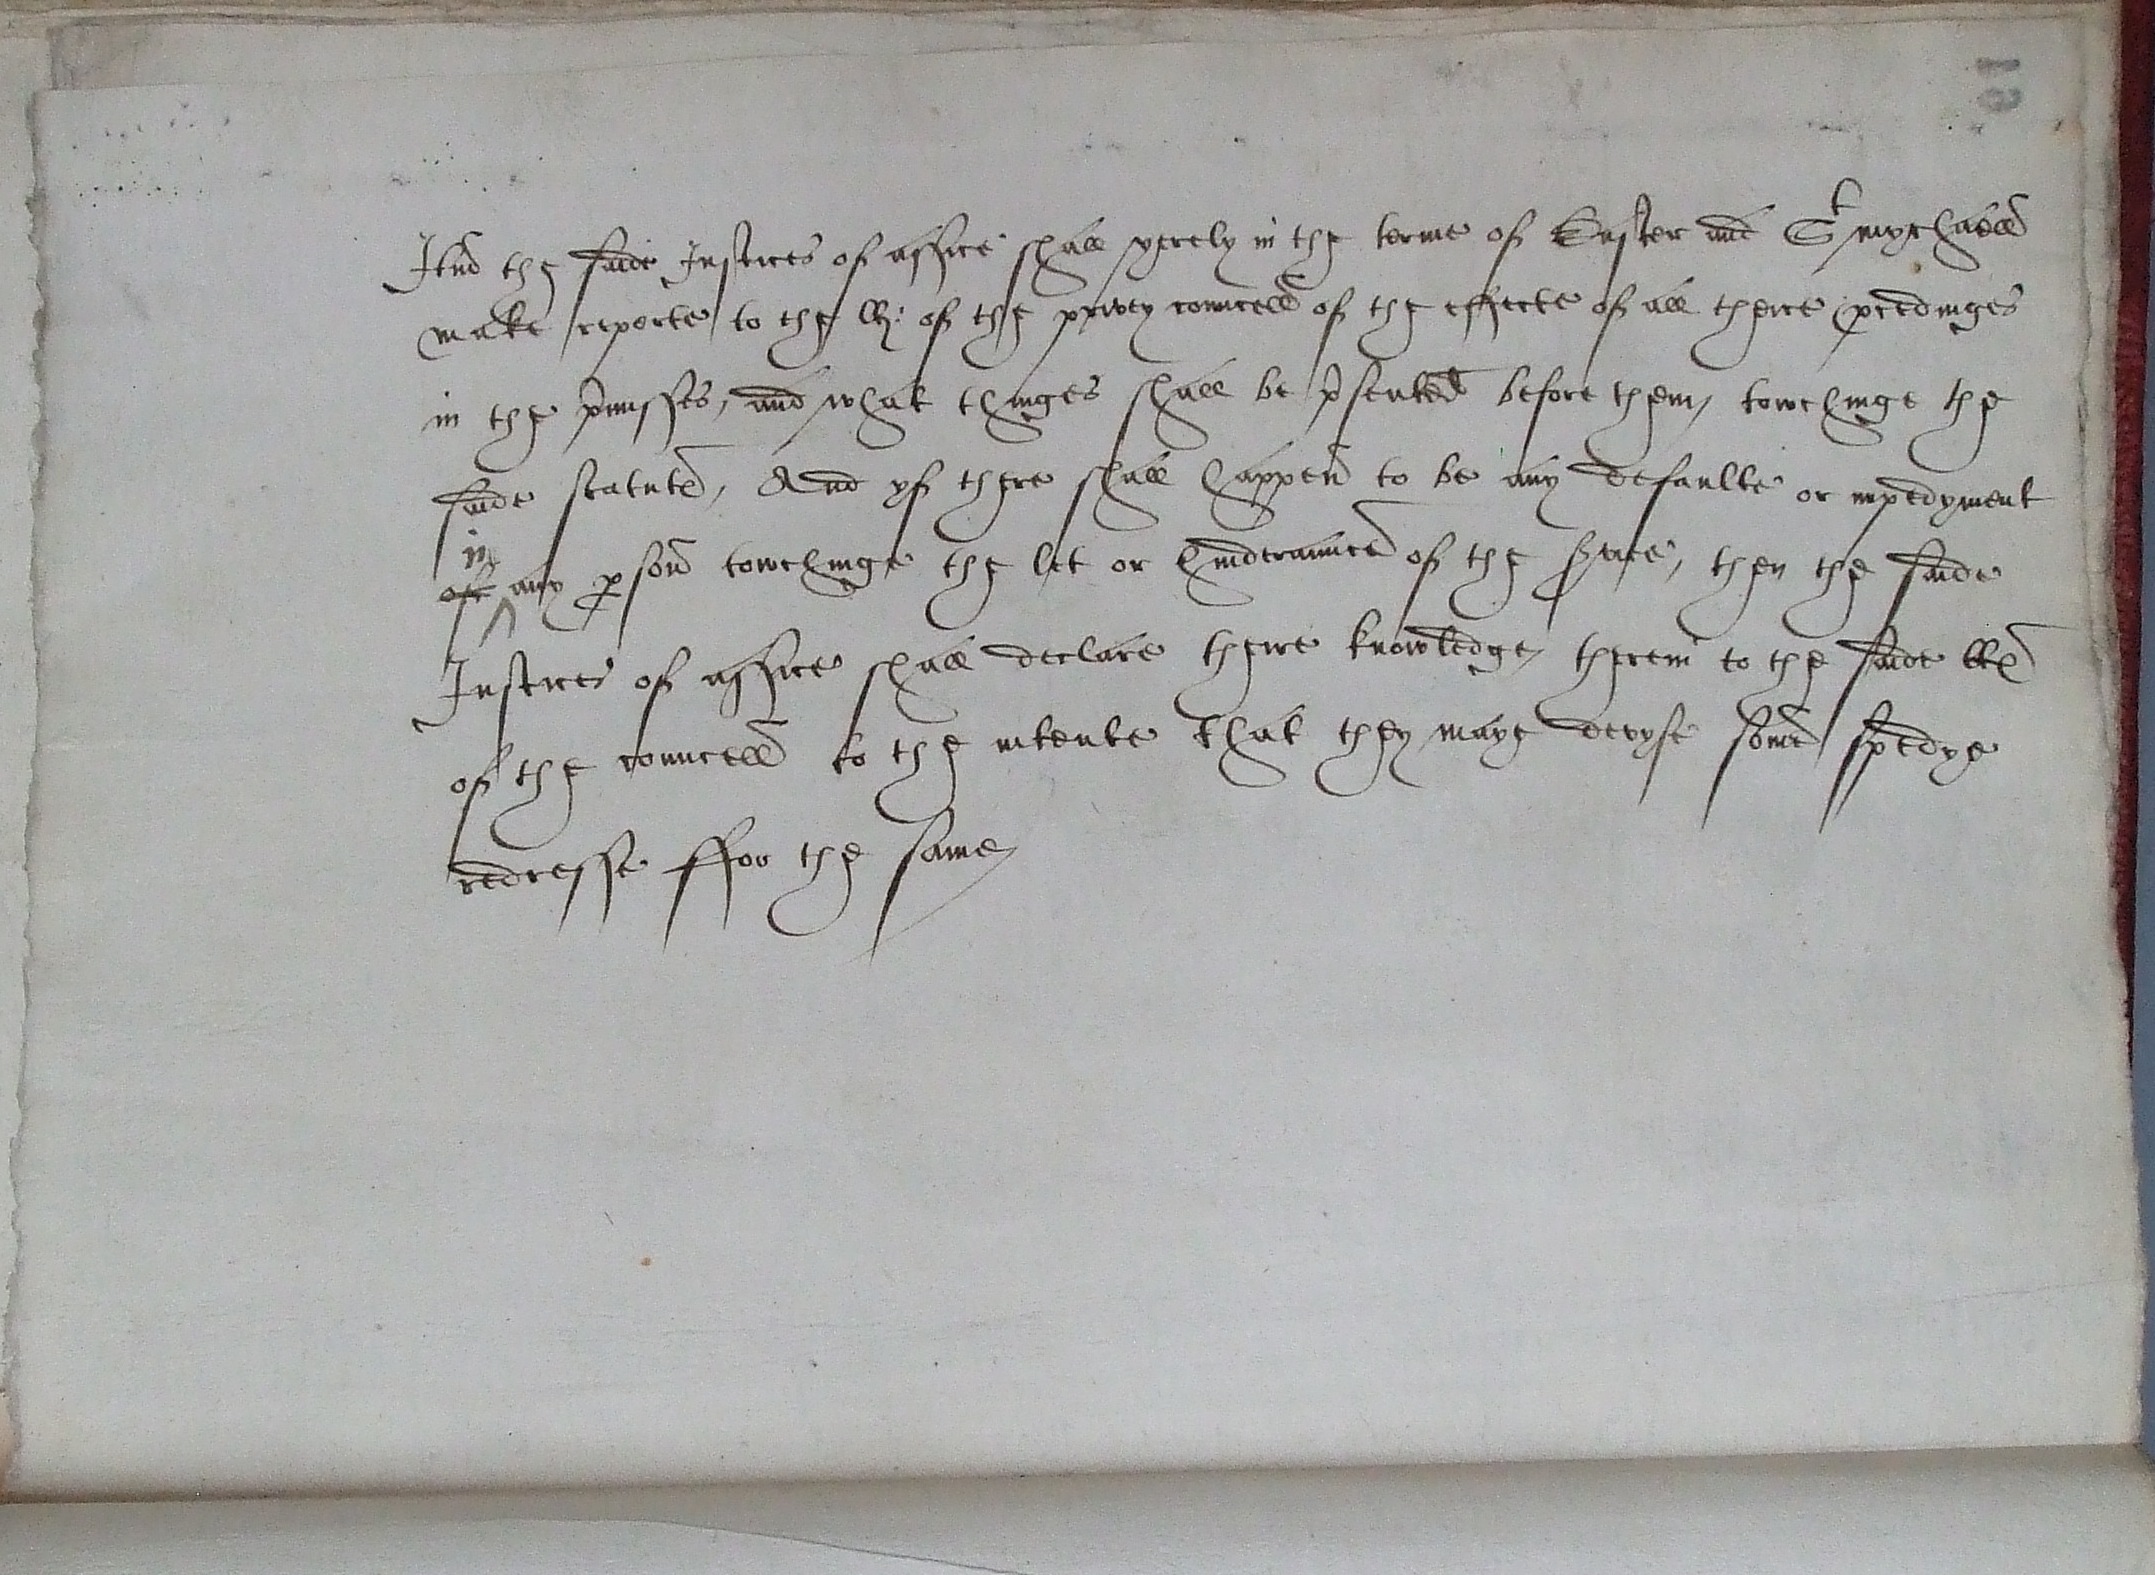 Itm the saide Justices of assice shall yerely in the terme of Easter and St mychaell
make reporte to the ll: of the privey councell of the effecte of all theire procedinges
in the pmisses, and what thinges shall be psented before them, towchinge the
saide statute, And yf there shall happen to be any defaulte or impedyment
in
of any pson towchinge the let or hindraunce of the svice, then the saide
Justices of assice shall declare theire knowledge therein to the saide lls
of the councell to the intente that they maye devyse some spedye
redresse ffor the same